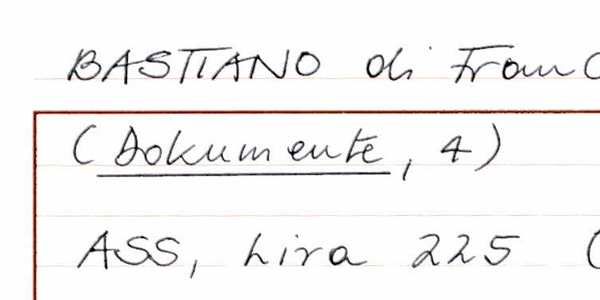 BASTIANO di Franc
(Dokumente, 4)
ASS, Lira 225 (